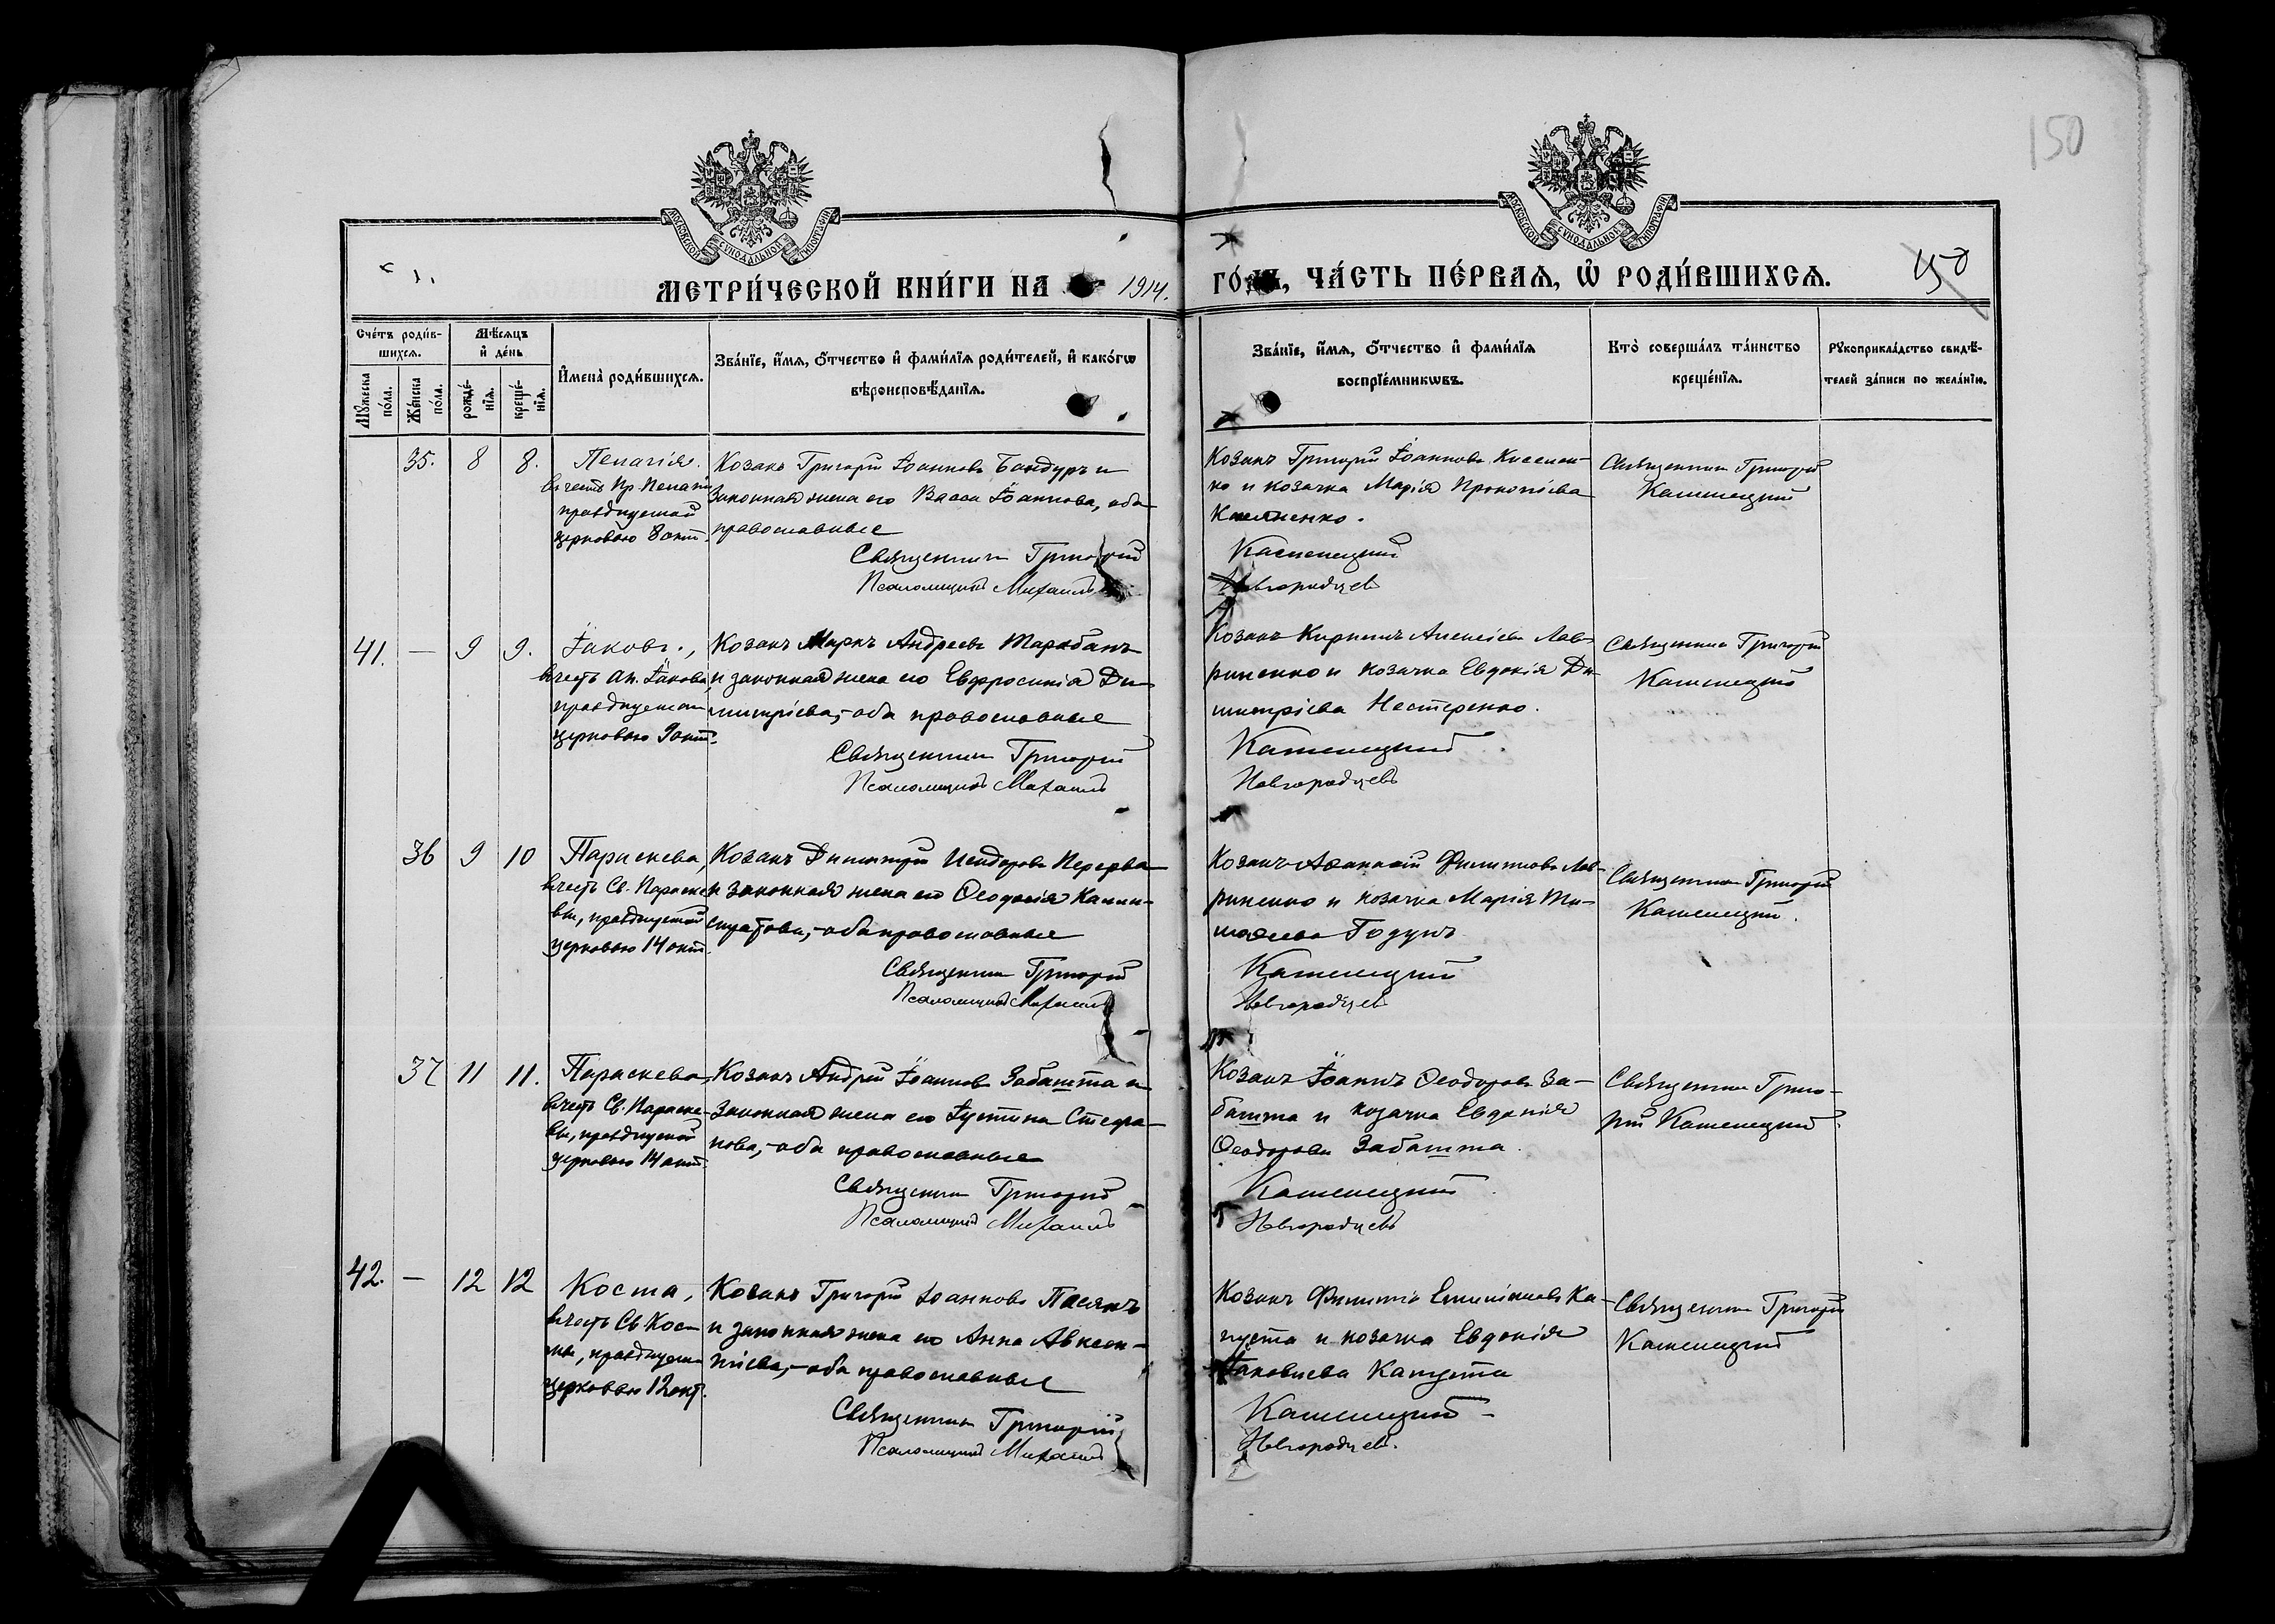 150
МОСКОВСКОЙ СѴНОДАЛЬНОЙ ТИПОГРАФІИ
МОСКОВСКОЙ СѴНОДАЛЬНОЙ ТИПОГРАФІИ
МЕТРИ́ЧЕСКОЙ КНИ́ГИ НА 1914.
ГО́ДЪ, ЧА́СТЬ ПЕ́РВАѦ, Ѡ҆ РОДИ́ВШИХСѦ.
150
Сче́тъ роди́в-
шихсѧ.
Мꙋ́жеска
по́ла.
Же́нска
по́ла.
Мѣ́сѧцъ
и҆ де́нь
рожде́-
нїѧ.
креще́-
нїѧ.
И҆мена̀ роди́вшихсѧ.
Зва́нїе, и҆́мѧ, ѻ҆́тчество и҆ фами́лїѧ роди́телей, и҆ како́гѡ
вѣроисповѣ́данїѧ.
Зва́нїе, и҆́мѧ, ѻ҆́тчество и҆ фами́лїѧ
воспрїе́мникѡвъ.
Кто̀ соверша́лъ та́инство
креще́нїѧ.
Рꙋкоприкла́дство свидѣ́-
телей за́писи по жела́нїю.
35. 8 8.
Пелагія.
въ честь Пр. Пелагіи
празднуемой
церковью 8 окт.
Козакъ Григорій Іоанновъ Бандуръ и
законная жена его Васса Іоаннова, оба
православные
Священникъ Григорій
Псаломщикъ Михаилъ
Козакъ Григорій Іоанновъ
и козачка Марія Прокопіева
Каменецкій
Новгородцевъ
Священникъ Григорій
Каменецкій
41. — 9 9.
Іаковъ.,
въ честь Ап. Іакова,
празднуемаго
церковью 9 окт.
Козакъ Маркъ Андреевъ Тарабанъ
и законная жена его Евфросинія Ди-
митріева,- оба православные
Священникъ Григорій
Псаломщикъ Михаилъ
Козакъ Кириллъ Алексіевъ Лав-
риненко и козачка Евдокія Ди-
митріева Нестеренко.
Каменецкій
Новгородцевъ
Священникъ Григорій
Каменецкій
36 9 10
Параскева,
въ честь Св. Параске-
вы, празднуемой
церковью 14 окт.
Козакъ Димитрій Исидоровъ Перерва
и законная жена его Ѳеодосія Калли-
стратова,- оба православные
Священникъ Григорій
Псаломщикъ Михаилъ
Козакъ Аѳанасій Филипповъ Лав-
риненко и козачка Марія Ти-
моѳеева Годунъ
Каменецкій
Новгородцевъ
Священникъ Григорій
Каменецкій.
37 11 11.
Параскева,
въ честь Св. Параске-
вы, празднуемой
церковью 14 окт.
Козакъ Андрій Іоанновъ Забашта и
законная жена его Іустина Стефа-
нова,- оба православные
Священникъ Григорій
Псаломщикъ Михаилъ
Козакъ Іоаннъ Ѳеодоровъ За-
башта и козачка Евдокія
Ѳеодорова Забашта.
Каменецкій
Новгородцевъ
Священникъ Григо-
рій Каменецкій.
42. — 12 12
Косма,
въ честь Св. Кос-
мы, празднуем.
церковью 12 окт.
Козакъ Григорій Іоанновъ Пасякъ
и законная жена его Анна Авксен-
тіева,- оба православные
Священникъ Григорій
Псаломщикъ Михаилъ
Козакъ Филиппъ Емиліановъ Ка-
пуста и козачка Евдокія
Іаковлева Капуста
Каменецкій
Новгородцевъ.
Священникъ Григорій
Каменецкій